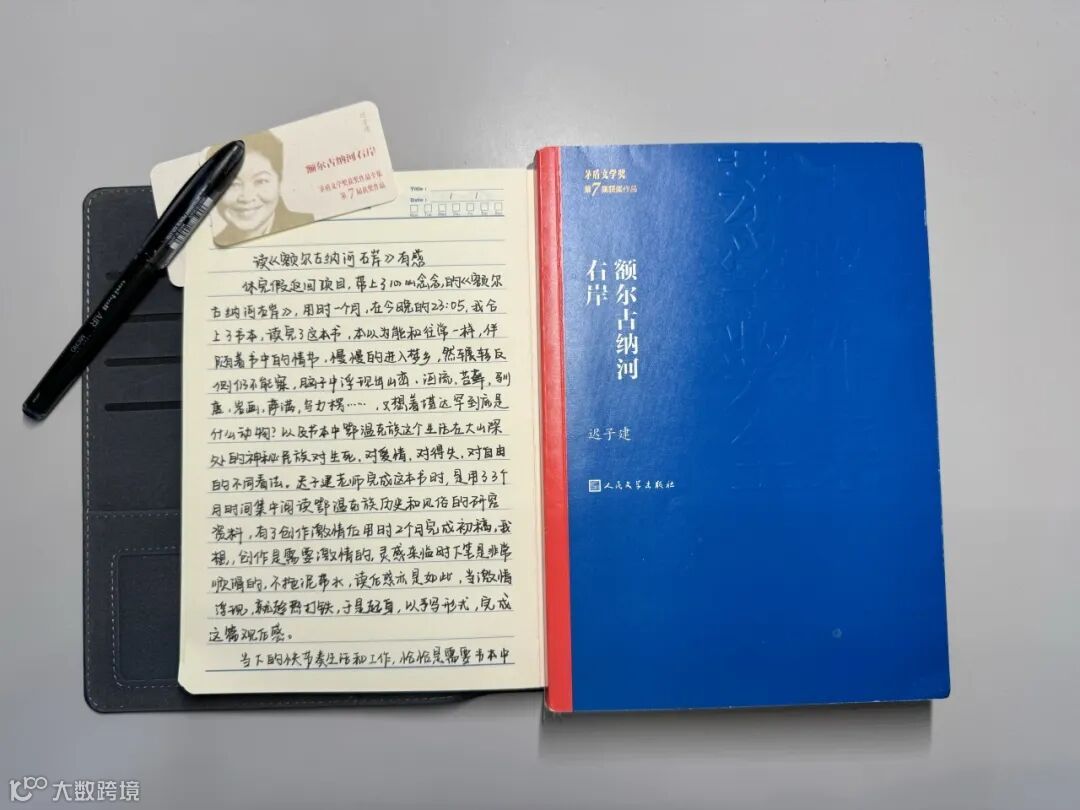 迟子建
额尔古纳河右岸
茅盾文学奖获奖作品全集
第7届获奖作品
Title :
Date :
读《额尔古纳河右岸》有感
休完假返回项目，带上了心心念念的《额尔
古纳河右岸》，用时一个月，在今晚的23:05，我合
上了书本，读完了这本书，本以为能和往常一样，伴
随着书中的情节，慢慢的进入梦乡，然辗转反
侧仍不能寐，脑子中浮现出山峦、河流、苔藓、驯
鹿、岩画、萨满、乌力楞……，又想着堪达罕到底是
什么动物？以及书本中鄂温克族这个生活在大山深
处的神秘民族对生死，对爱情，对得失，对自由
的不同看法。迟子建老师完成这本书时，是用了3个
月时间集中阅读鄂温克族历史和风俗的研究
资料，有了创作激情后用时2个月完成初稿，我
想，创作是需要激情的，灵感来临时下笔是非常
顺滑的，不拖泥带水，读后感亦是如此，当激情
浮现，就趁热打铁，于是起身，以手写形式，完成
这篇观后感。
当下的快节奏生活和工作，恰恰是需要书本中
uni-ball AIR
MICRO
茅盾文学奖
第7届获奖作品
额尔古纳河
右岸
迟子建
人民文学出版社
大数跨境